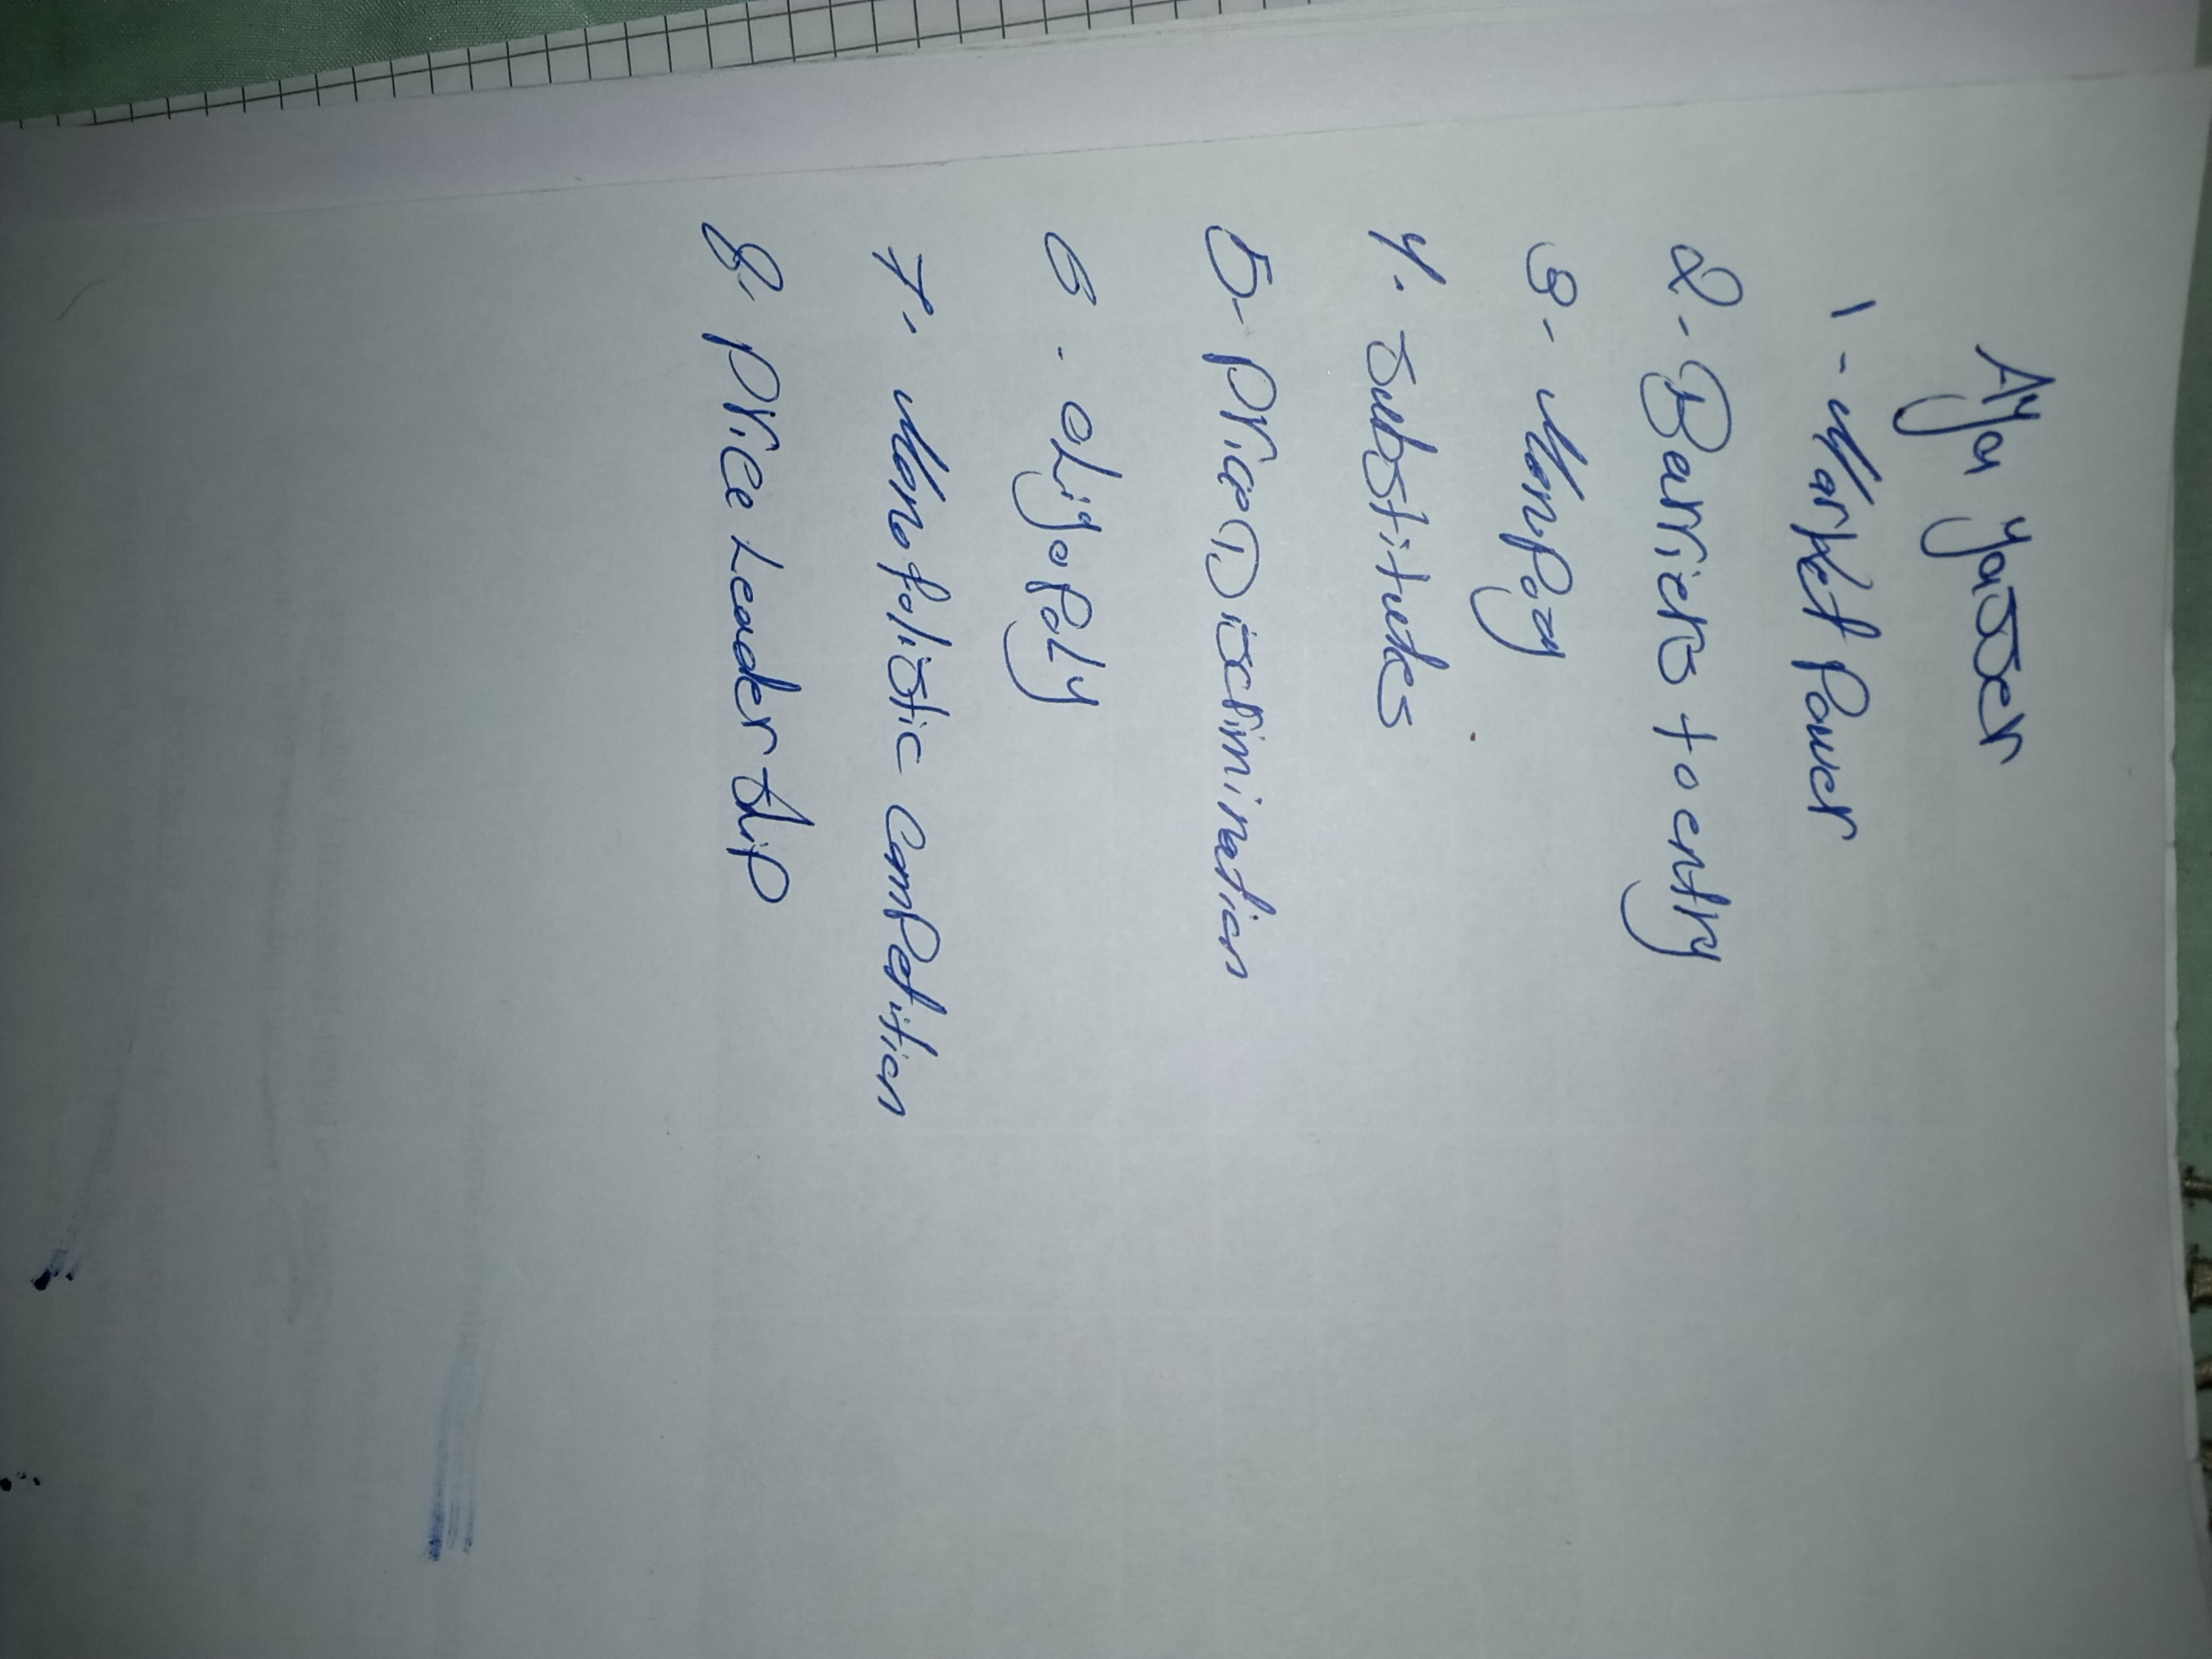 Aya yasser
1 - Market Power
2 - Barriers to entry
3 - Monpoly
4. Substitutes
5- Price Discrimination
6 - oLigopoly
7 - Monopolistic competition
8- Price Leadership